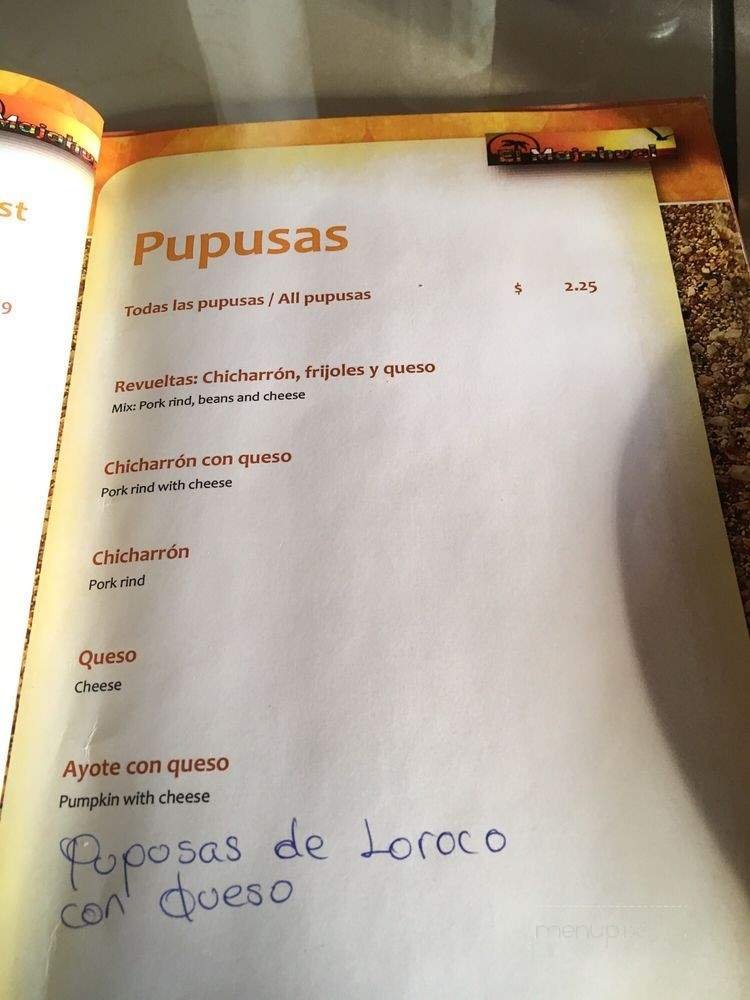 st
9
El Majahual
Pupusas
Todas las pupusas / All pupusas $ 2.25
Revueltas: Chicharrón, frijoles y queso
Mix: Pork rind, beans and cheese
Chicharrón con queso
Pork rind with cheese
Chicharrón
Pork rind
Queso
Cheese
Ayote con queso
Pumpkin with cheese
Puposas de Loroco
con Queso
menupix